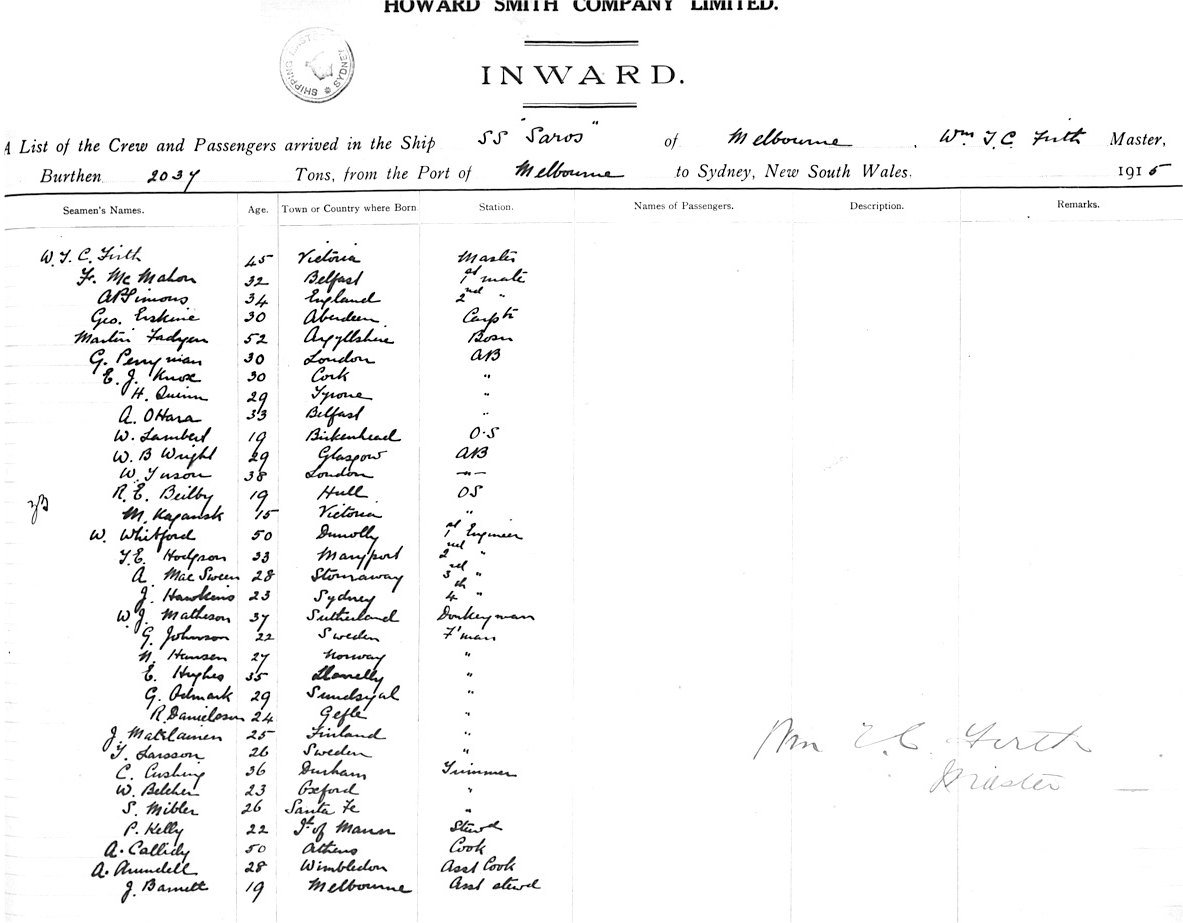 HOWARD SMITH COMPANY LIMITED.
INWARD.
A List of the Crew and Passengers arrived in the Ship SS "Saros" of Melbourne, Wm T. C. Firth Master,
Burthen 2037 Tons, from the Port of Melbourne to Sydney, New South Wales. 1915
Seamen's Names. Age. Town or Country where Born Station. Names of Passengers. Description. Remarks.
W. T. C. Firth 45 Victoria Master
F. McMahon 32 Belfast 1st mate
A P Simons 34 England 2nd "
Geo. Erskine 30 Aberdeen Carptr
Martin Fadyen 52 Argyllshire Bosn
G. Perryman 30 London AB
E. J. Knox 30 Cork "
H. Quinn 29 Tyrone "
A. OHara 33 Belfast "
W. Lambert 19 Birkenhead O.S
W. B Wright 29 Glasgow AB
W. Tuson 38 London -"-
R. E. Beilby 19 Hull OS
M. Kagansk 15 Victoria "
W. Whitford 50 Dunolly 1st Engineer
T. E. Hodgson 33 Maryport 2nd "
A. MacSween 28 Stornaway 3rd "
J. Hawkins 23 Sydney 4th "
W. J. Matheson 37 Sutherland Donkeyman
G. Johnson 22 Sweden F'man
N. Hansen 27 Norway "
E. Hughes 35 Llanelly "
G. Odmark 29 Sundsval "
R. Danielsson 24 Gefle "
J. Matilainen 25 Finland "
T. Larsson 26 Sweden "
C. Cushing 36 Durham Trimmer
W. Belcher 23 Oxford "
S. Mibler 26 Santa Fe "
P. Kelly 22 I. of Mann Stewd
A. Callidy 50 Athens Cook
A. Arundell 28 Wimbledon Asst Cook
J. Barnett 19 Melbourne Asst stewd
Wm T. C. Firth
Master